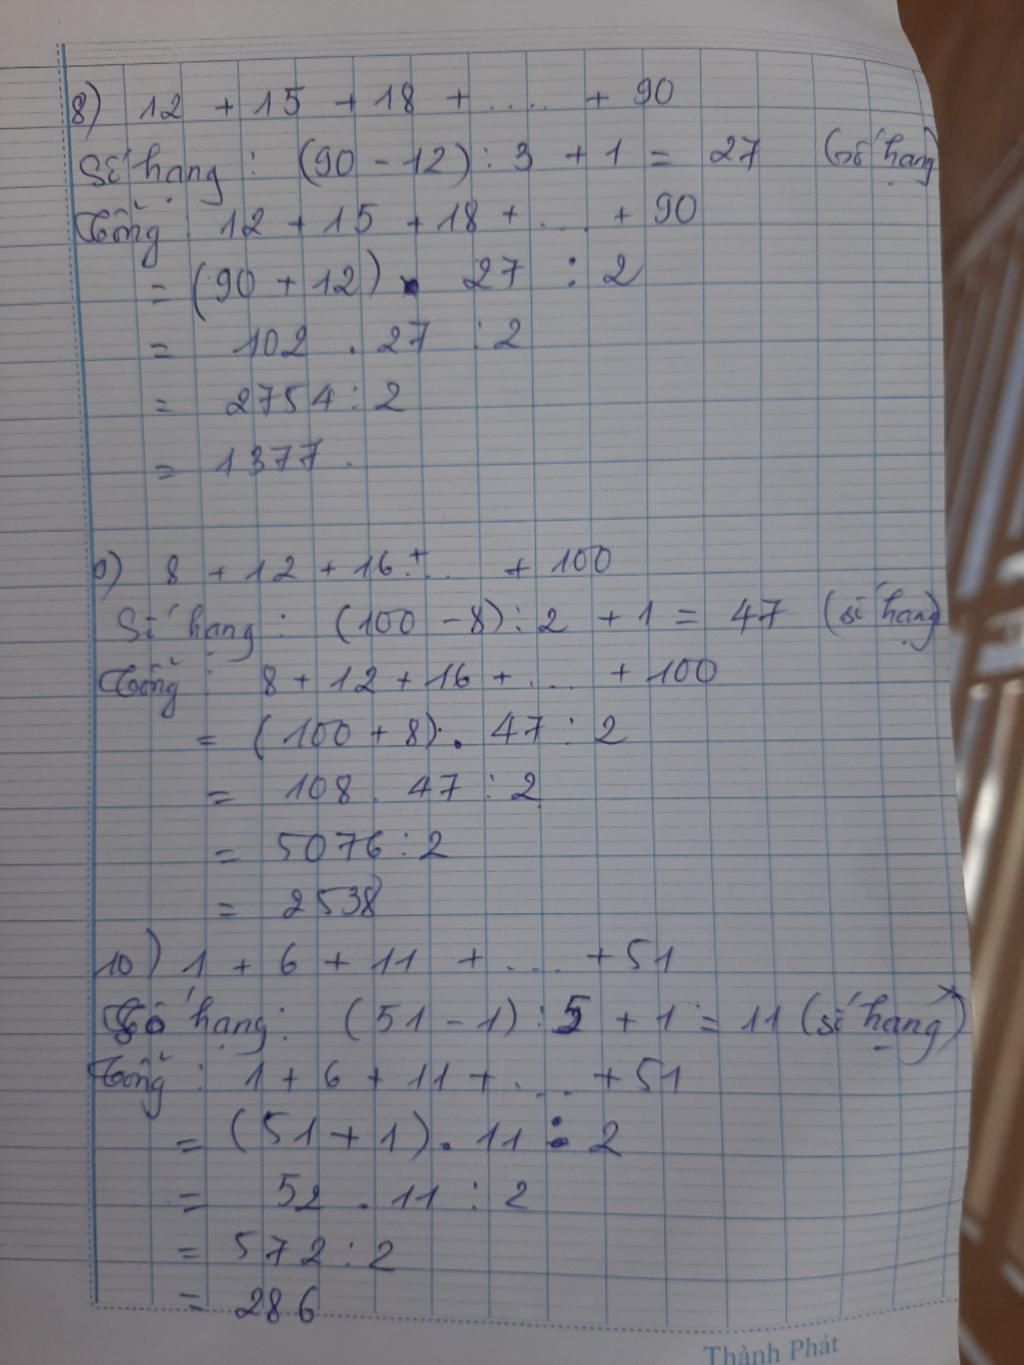 8) 12 + 15 + 18 + .... + 90
Số hạng : (90 - 12) : 3 + 1 = 27 (số hạng)
Tổng : 12 + 15 + 18 + .... + 90
= (90 + 12) . 27 : 2
= 102 . 27 : 2
= 2754 : 2
= 1377.
9) 8 + 12 + 16 + ... + 100
Số hạng : (100 - 8) : 2 + 1 = 47 (số hạng)
Tổng : 8 + 12 + 16 + .... + 100
= (100 + 8) . 47 : 2
= 108 . 47 : 2
= 5076 : 2
= 2538
10) 1 + 6 + 11 + .... + 51
Số hạng : (51 - 1) : 5 + 1 = 11 (số hạng)
Tổng : 1 + 6 + 11 + .... + 51
= (51 + 1) . 11 : 2
= 52 . 11 : 2
= 572 : 2
= 286
Thành Phát